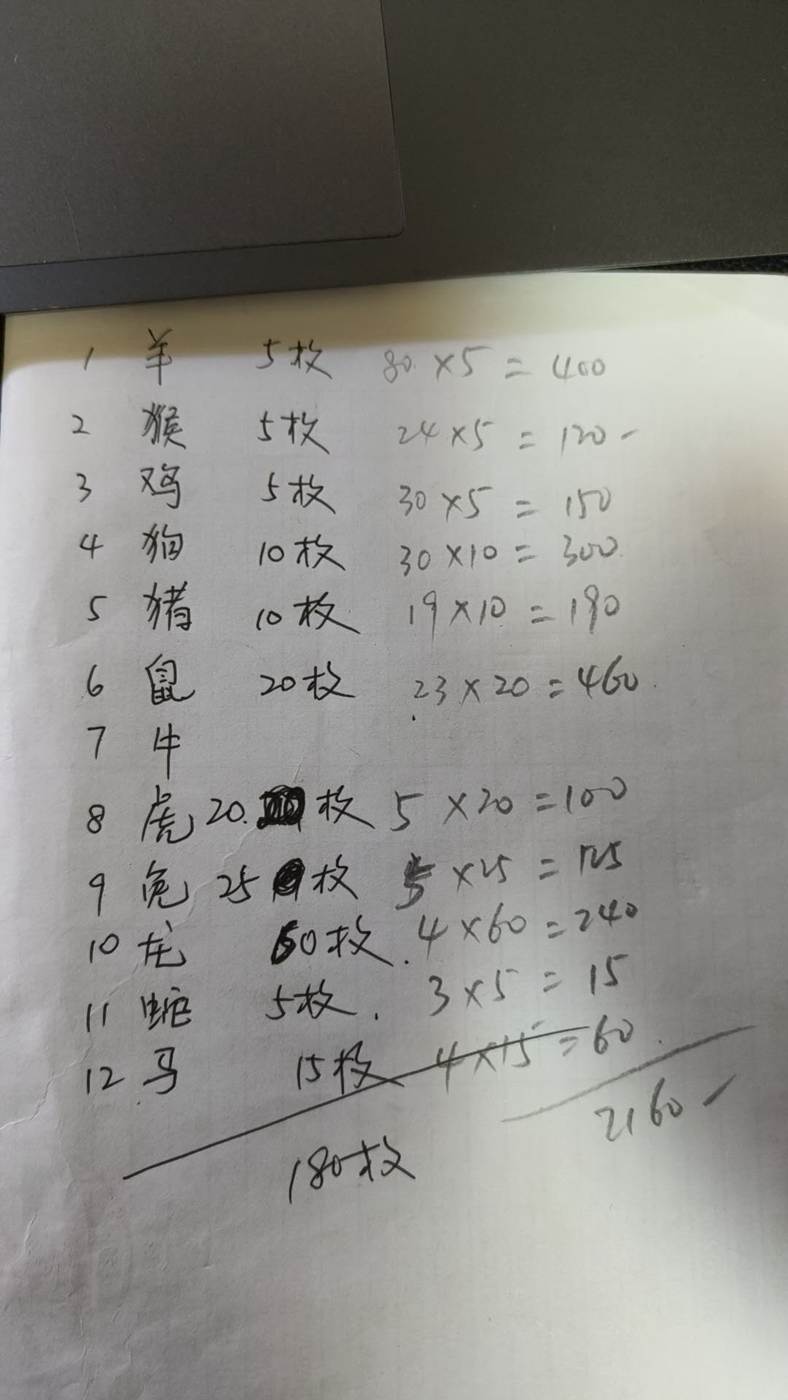 1 羊 5枚 80×5=400
2 猴 5枚 24×5=120-
3 鸡 5枚 30×5=150
4 狗 10枚 30×10=300
5 猪 10枚 19×10=190
6 鼠 20枚 23×20=460
7 牛
8 虎 20 枚 5×20=100
9 兔 25 枚 5×25=125
10 龙 60枚. 4×60=240
11 蛇 5枚. 3×5=15
12 马 15枚 4×15=60
2160
180枚